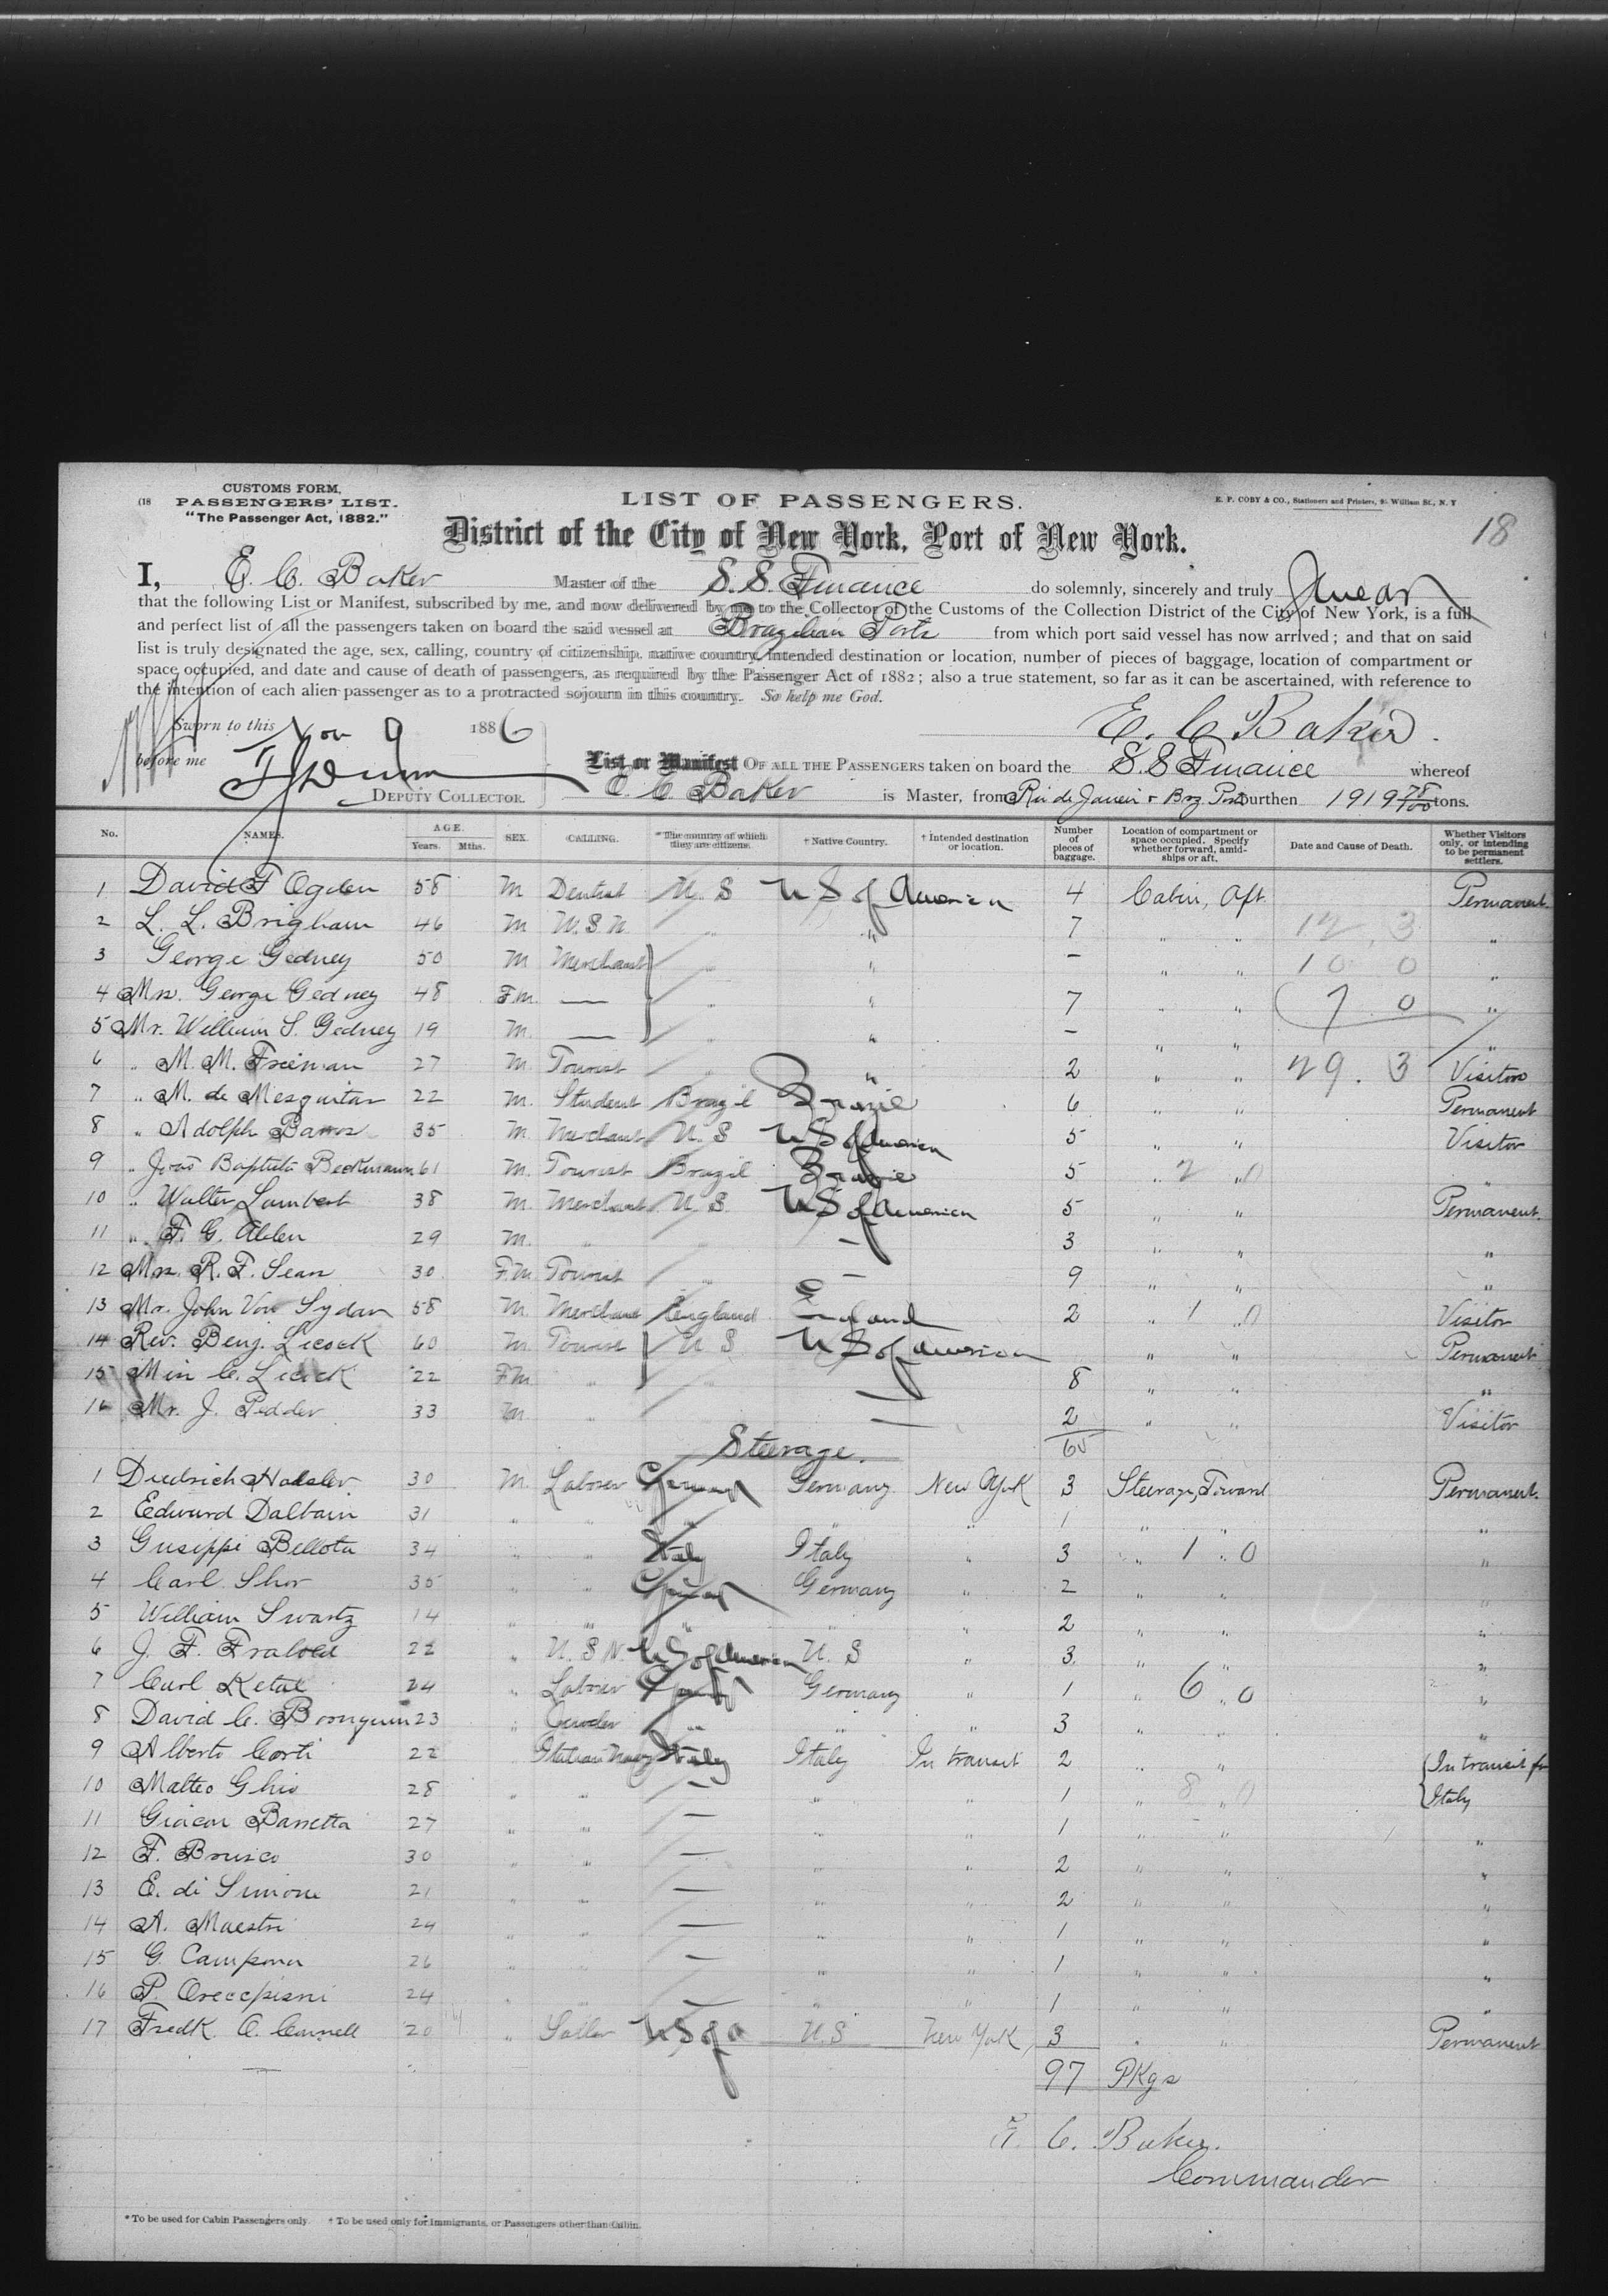 CUSTOMS FORM,
(18 PASSENGERS' LIST.
"The Passenger Act, 1882."
LIST OF PASSENGERS.
E. P. COBY & CO., Stationers and Printers, William St., N. Y
18
District of the City of New York, Port of New York.
I, E. C. Baker Master of the S.S. Finance do solemnly, sincerely and truly swear
that the following List or Manifest, subscribed by me, and now delivered by me to the Collector of the Customs of the Collection District of the City of New York, is a full
and perfect list of all the passengers taken on board the said vessel at Brazilian Ports from which port said vessel has now arrived; and that on said
list is truly designated the age, sex, calling, country of citizenship, native country, intended destination or location, number of pieces of baggage, location of compartment or
space occupied, and date and cause of death of passengers, as required by the Passenger Act of 1882; also a true statement, so far as it can be ascertained, with reference to
the intention of each alien passenger as to a protracted sojourn in this country. So help me God.
Sworn to this Nov 9 1886
E. C. Baker.
before me
DEPUTY COLLECTOR.
List or Manifest OF ALL THE PASSENGERS taken on board the S.S Finance whereof
E. C. Baker is Master, from Rio de Janeiro & Brz Ports burthen 1919 78/100 tons.
No. NAMES. AGE. Years. Mths. SEX. CALLING. *The country of which they are citizens. † Native Country. † Intended destination or location. Number of pieces of baggage. Location of compartment or space occupied. Specify whether forward, amidships or aft. Date and Cause of Death. Whether Visitors only, or intending to be permanent settlers.
1 David F Ogden 58 M Dentist U. S U S of America 4 Cabin, Aft. Permanent.
2 L. L. Brigham 46 M U.S.N. " " 7 " " 12 3 "
3 George Gedney 50 M Merchant " " - " " 10 0 "
4 Mrs. George Gedney 48 F.m. — " " 7 " " 7 0 "
5 Mr. William S. Gedney 19 M. — " " - " " "
6 " M. M. Freeman 27 M Tourist " " 2 " " 29. 3 Visitor
7 " M. de Mesquitar 22 M. Student Brazil Brazil 6 " " Permanent
8 " Adolph Barros 35 M. Merchant U. S U S of America 5 " " Visitor
9 " Joaõ Baptista Beckmann 61 M. Tourist Brazil Brazil 5 " 2 " 0 "
10 " Walter Lambert 38 M. Merchant U. S. U S of America 5 " " Permanent.
11 " F. G. Allen 29 M. " " — 3 " " "
12 Mrs. R. F. Sears 30 F.M. Tourist " — 9 " " "
13 Mr. John Von Sydan 58 M. Merchant England England 2 " 1 " 0 Visitor
14 Rev. Benj. Licock 60 M. Tourist U S U S of America " " Permanent
15 Miss C. Licock 22 F.M. " " — 8 " " "
16 Mr. J. Pedder 33 M. " — 2 " " Visitor
Steerage. 65
1 Diedrich 30 M. Laborer Germany Germany New York 3 Steerage, Forward Permanent.
2 Edward Dalbain 31 " " " " " 1 " " "
3 Guseppi Bellota 34 " " Italy Italy " 3 " 1 " 0 "
4 Carl Shor 35 " " Germany Germany " 2 " " "
5 William Swartz 14 " " " " " 2 " " "
6 J. F. 22 " U. S N. U S of America U. S " 3 " " "
7 Carl Ketal 24 " Laborer Germany Germany " 1 " 6 " 0 "
8 David C. 23 " " " " 3 " " "
9 Alberto Corti 22 Italian Navy Italy Italy In transit 2 " " In transit for
10 Matteo Ghio 28 " " — " " 1 " 8 " 0 Italy
11 Giacon Barretta 27 " " — " " 1 " " "
12 F. Brusco 30 " " — " " 2 " " "
13 E. di Simone 21 " " — " " 2 " " "
14 A. Maestri 24 " " — " " 1 " " "
15 G. Campona 26 " " — " " 1 " " "
16 P. 24 " — " " 1 " " "
17 Fredk O. Cornell 20 " Sailor U S of A U.S New York, 3 " " Permanent
97 Pkgs
E. C. Baker.
Commander
*To be used for Cabin Passengers only. † To be used only for Immigrants, or Passengers other than Cabin.